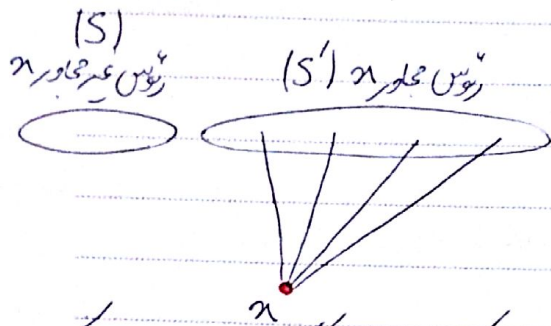 (S)
رئوس غیر مجاور x
(S') رئوس مجاور x
x